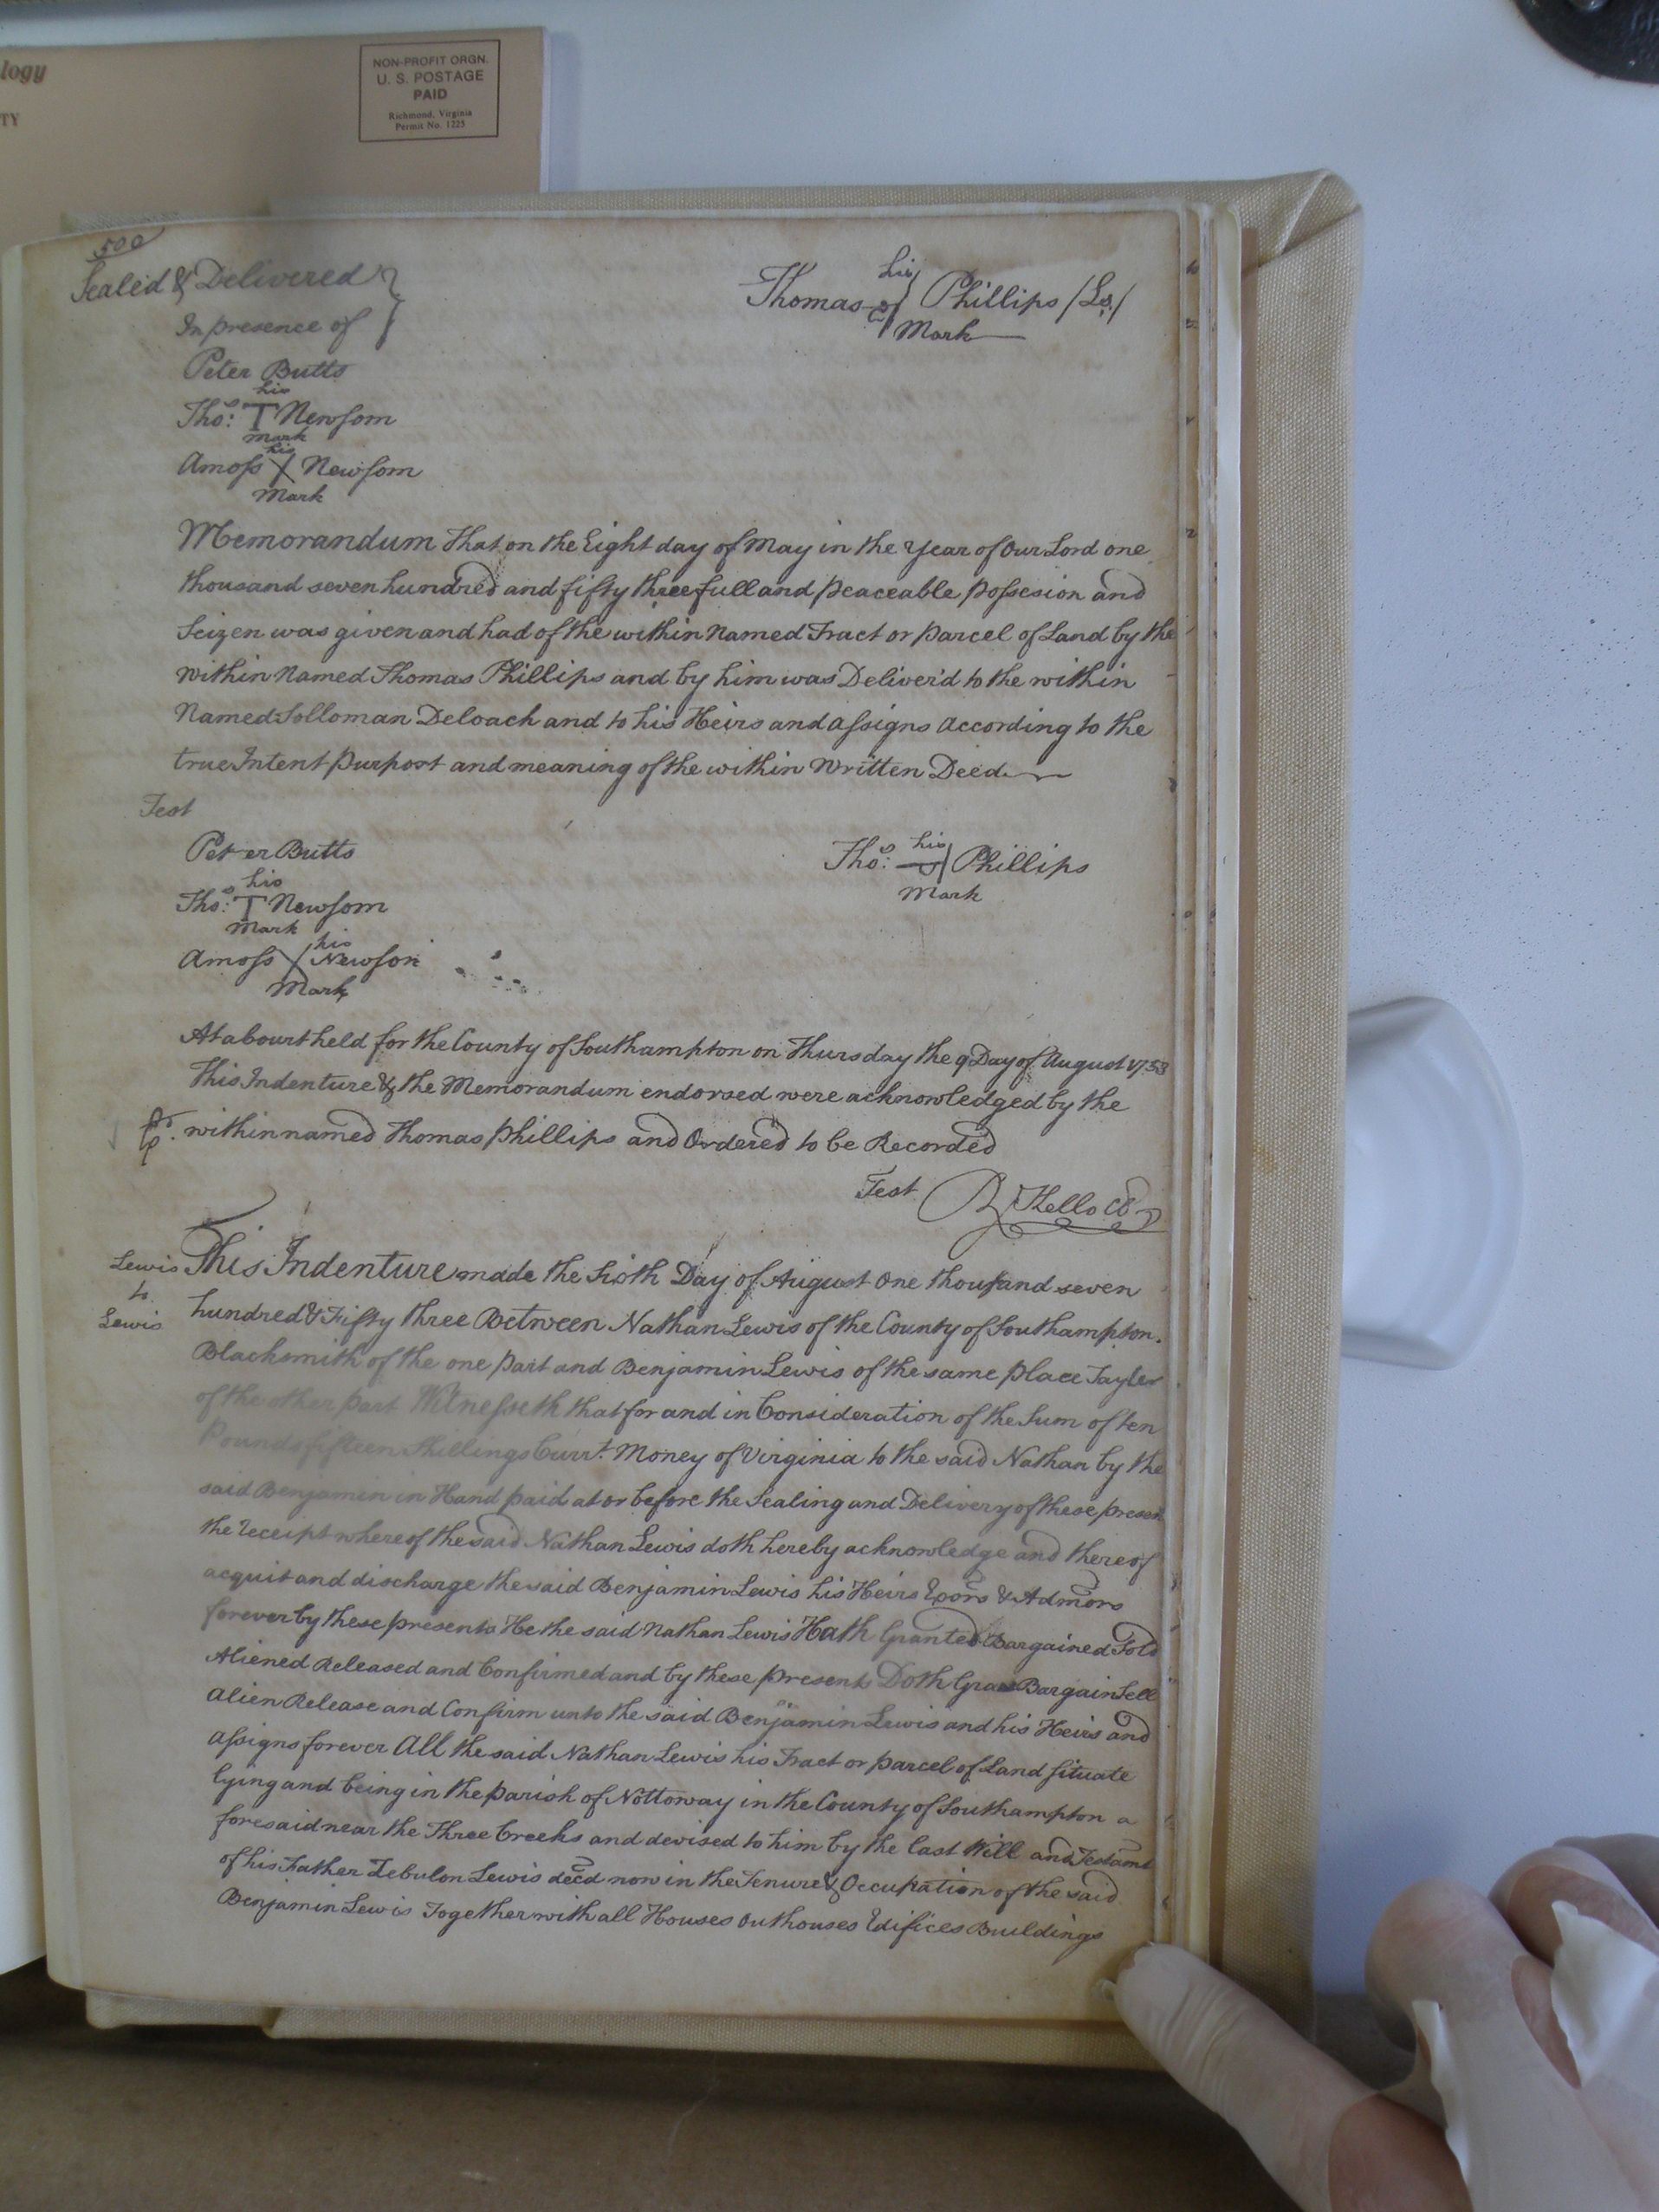 logy
TY
NON-PROFIT ORGN.
U. S. POSTAGE
PAID
Richmond, Virginia
Permit No. 1225
500
Sealed & Delivered
In presence of
Thomas his Phillips /Ls./
Mark
Peter Butts
his
Thos: T Newsom
mark
his
Amoss X Newsom
Mark
Memorandum That on the Eight day of May in the Year of Our Lord one
thousand seven hundred and fifty three full and peaceable Possesion and
Seizen was given and had of the within Named Tract or parcel of Land by the
within Named Thomas Phillips and by him was Deliver'd to the within
Named Solloman Deloach and to his Heirs and assigns according to the
true Intent Purport and meaning of the within Written Deed
Test
Peter Butts
Thos: his Phillips
Mark
his
Thos: T Newsom
Mark
his
Amoss X Newsom
Mark
At a Court held for the County of Southampton on Thursday the 9 Day of August 1753
This Indenture & the Memorandum endorsed were acknowledged by the
within named Thomas Phillips and Ordered to be Recorded
Test R Kello
Lewis
to
Lewis
This Indenture made the Sixth Day of August One thousand seven
hundred & Fifty three Between Nathan Lewis of the County of Southampton
Blacksmith of the one part and Benjamin Lewis of the same place Tayler
of the other part Witnesseth that for and in Consideration of the Sum of ten
Pounds fifteen Shillings Curr.t Money of Virginia to the said Nathan by the
said Benjamin in Hand paid at or before the Sealing and Delivery of these presen
the Receipt whereof the said Nathan Lewis doth hereby acknowledge and thereof
acquit and discharge the said Benjamin Lewis his Heirs Exors & Admors
forever by these presents He the said Nathan Lewis Hath Granted Bargained Sold
Aliened Released and Confirmed and by these presents Doth Grant Bargain Sell
Alien Release and Confirm unto the said Benjamin Lewis and his Heirs and
Assigns forever All the said Nathan Lewis his Tract or parcel of Land situate
lying and being in the parish of Nottoway in the County of Southampton a
foresaid near the Three Creeks and devised to him by the last Will and Testamt
of his Father Zebulon Lewis decd now in the Tenure & Occupation of the said
Benjamin Lewis Together with all Houses Outhouses Edifices Buildings